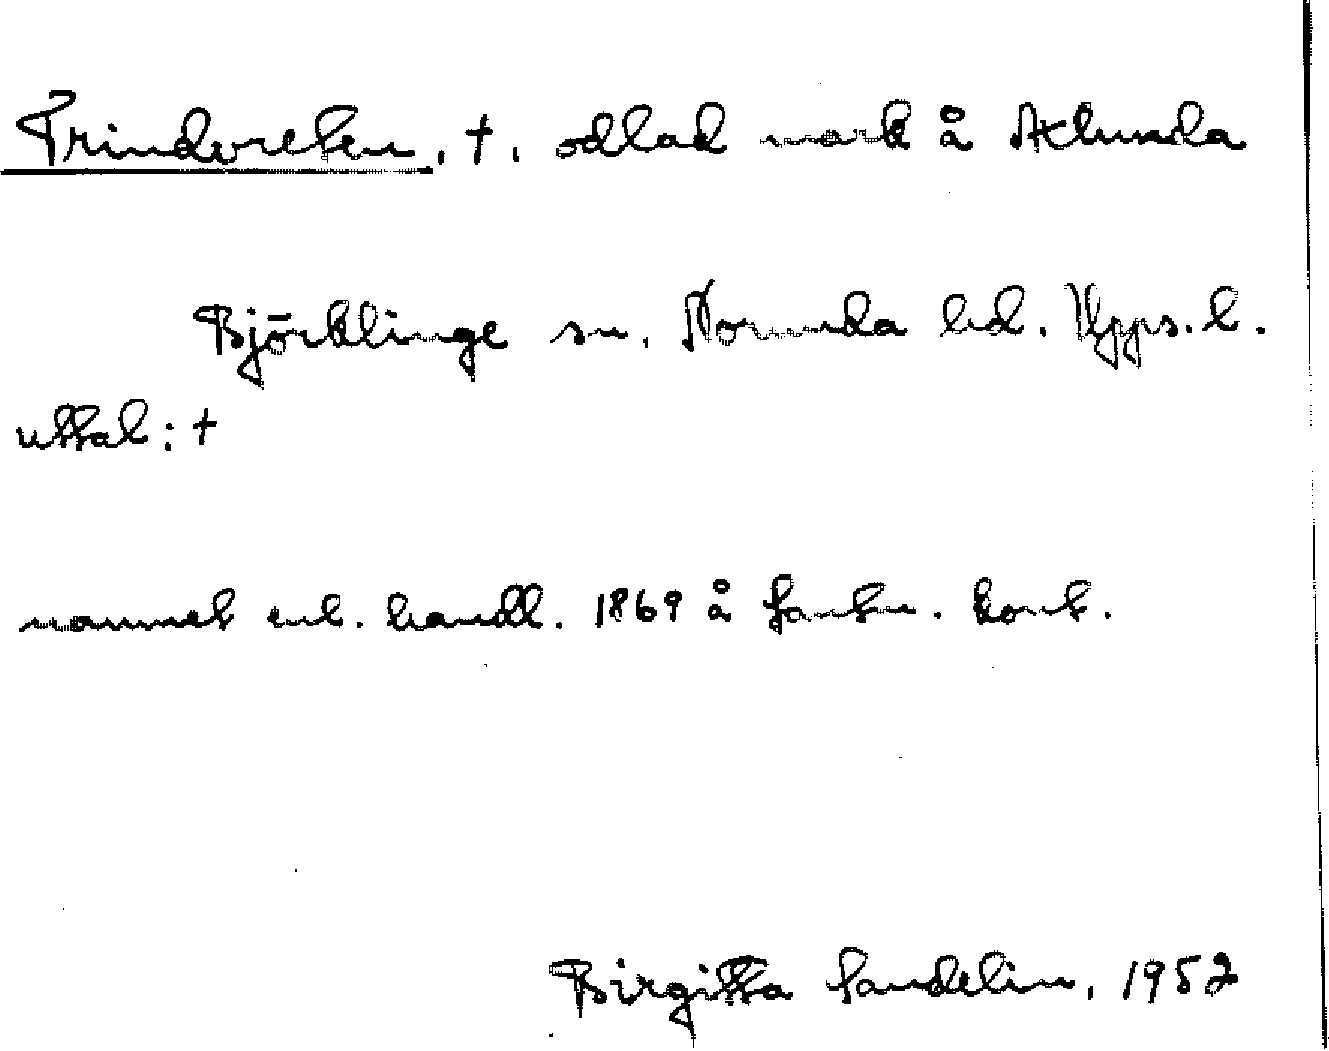 Trindvreten, †, odlad mark å Axlunda
Björklinge sn, Norunda hd. Upps. l.
uttal: †
namnet enl. handl. 1869 å lantm. kont.
Birgitta Sandelin, 1952